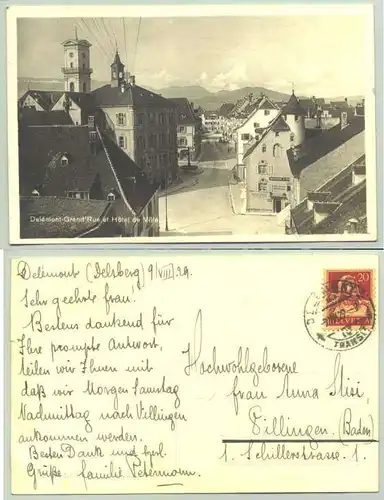 Delémont-Grand'Rue et Hôtel de Ville
Delémont (Delsberg) 9/VIII 29.
Sehr geehrte frau.
Bestens dankend für
Ihre prompte Antwort,
teilen wir Ihnen mit
daß wir Morgen Samstag
Nachmittag nach Villingen
ankommen werden.
Besten Dank und herzl.
Grüße. familie Petermann.
20
HELVETIA
TRANSIT
Hochwohlgeborene
frau Anna Misi,
Villingen (Baden)
1. Schillerstrasse 1.